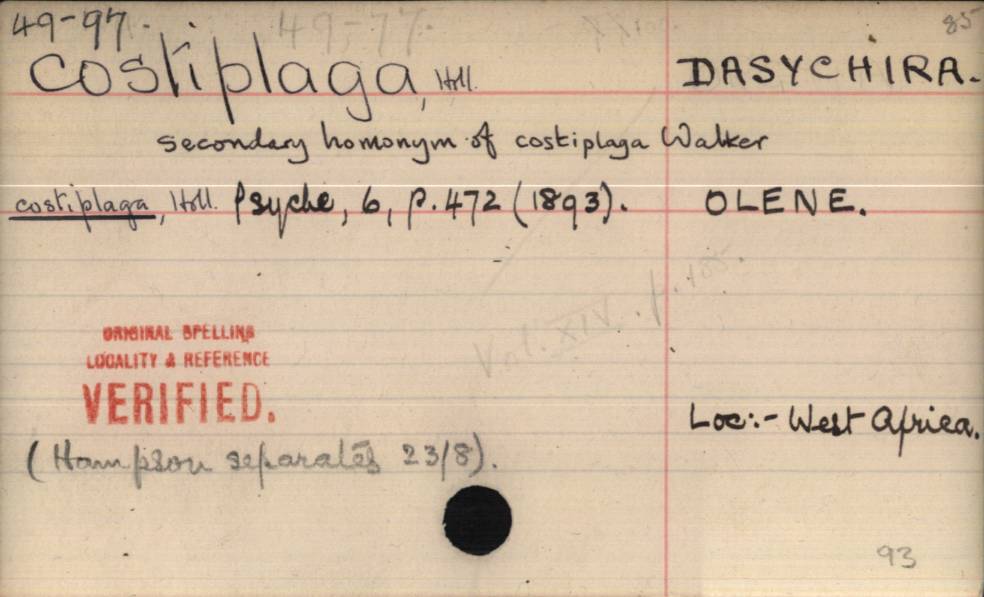 49-97.
49-77.
85
costiplaga, Holl. DASYCHIRA.
secondary homonym of costiplaga Walker
costiplaga, Holl. Psyche, 6, p. 472 (1893). OLENE.
Vol. XIV. p. 485.
ORIGINAL SPELLING
LOCALITY & REFERENCE
VERIFIED.
Loc:- West Africa.
(Hampson separates 23/8).
93